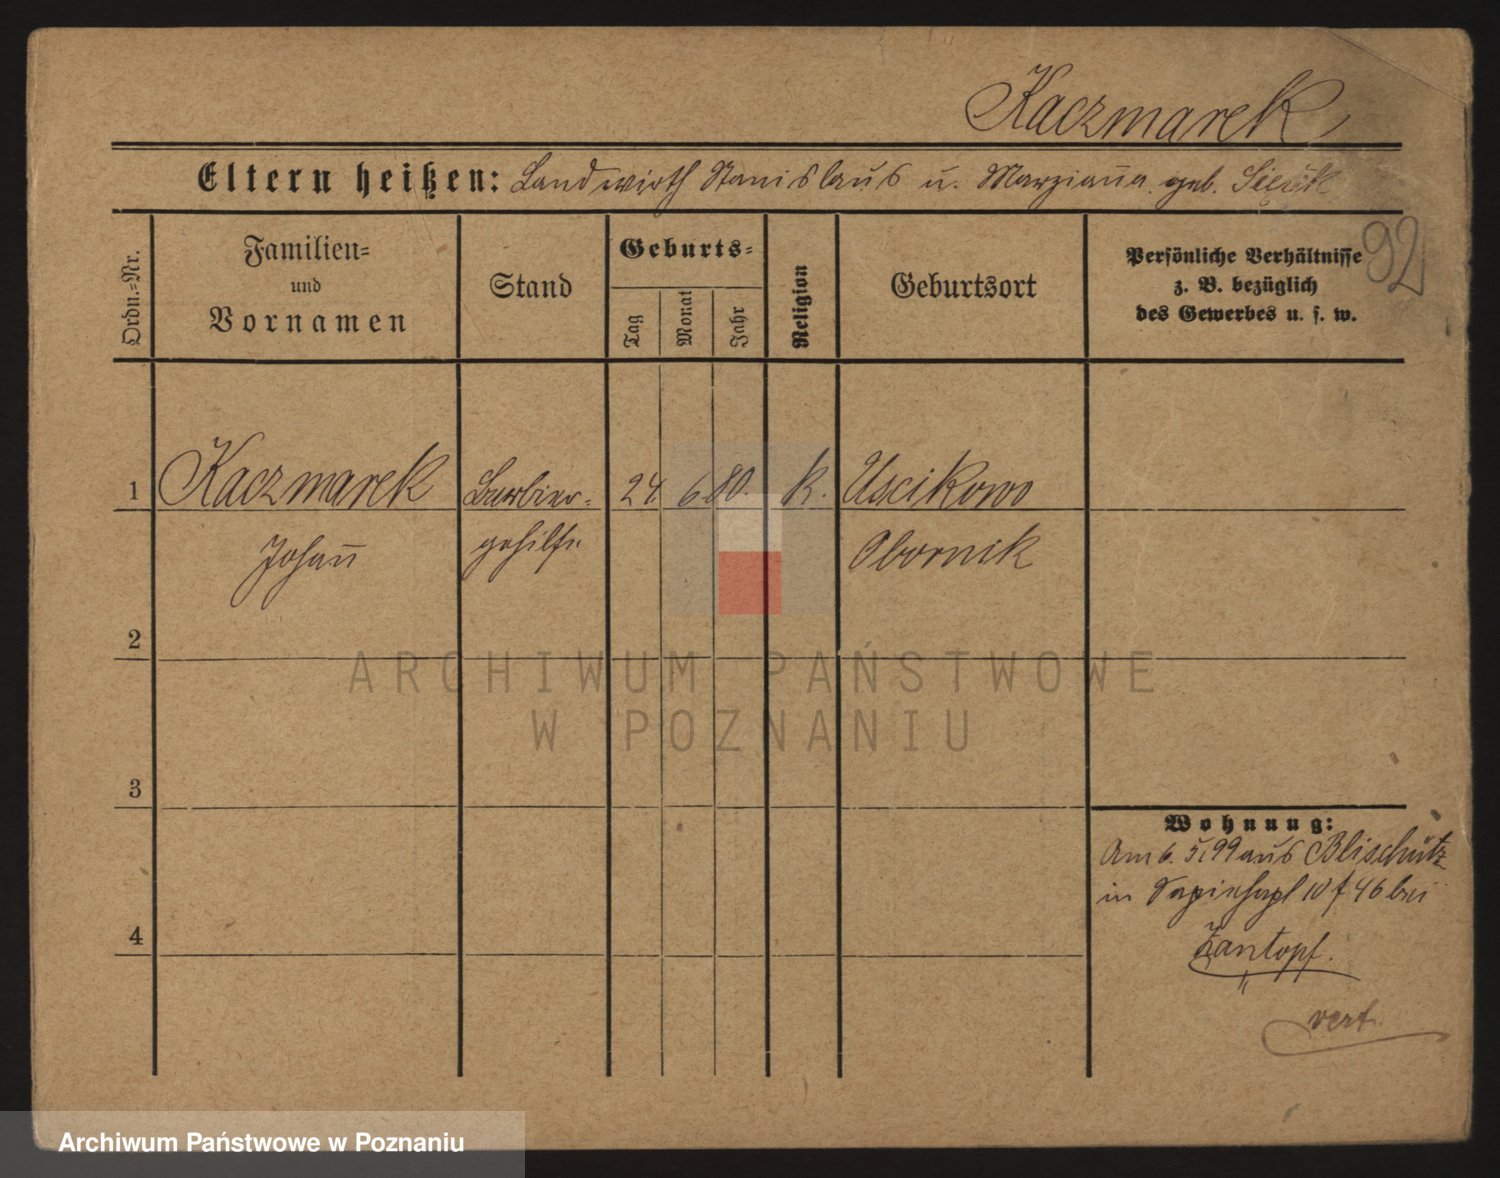 Kaczmarek
Eltern heißen: Landwirth Stanislaus u. Marzianna geb.
92
Ordn.=Nr.
Familien=
und
Vornamen
Stand
Geburts=
Tag
Monat
Jahr
Religion
Geburtsort
Persönliche Verhältnisse
z. B. bezüglich
des Gewerbes u. s. w.
1 Kaczmarek Barbier- 24. 6 80. k. Uscikowo
Johann gehilfe Obornik
2
3
4
Wohnung:
Am 6. 5. 99 aus Blischütz
in 10 f 46 bei
Zantopf.
ARCHIWUM PAŃSTWOWE
W POZNANIU
Archiwum Państwowe w Poznaniu